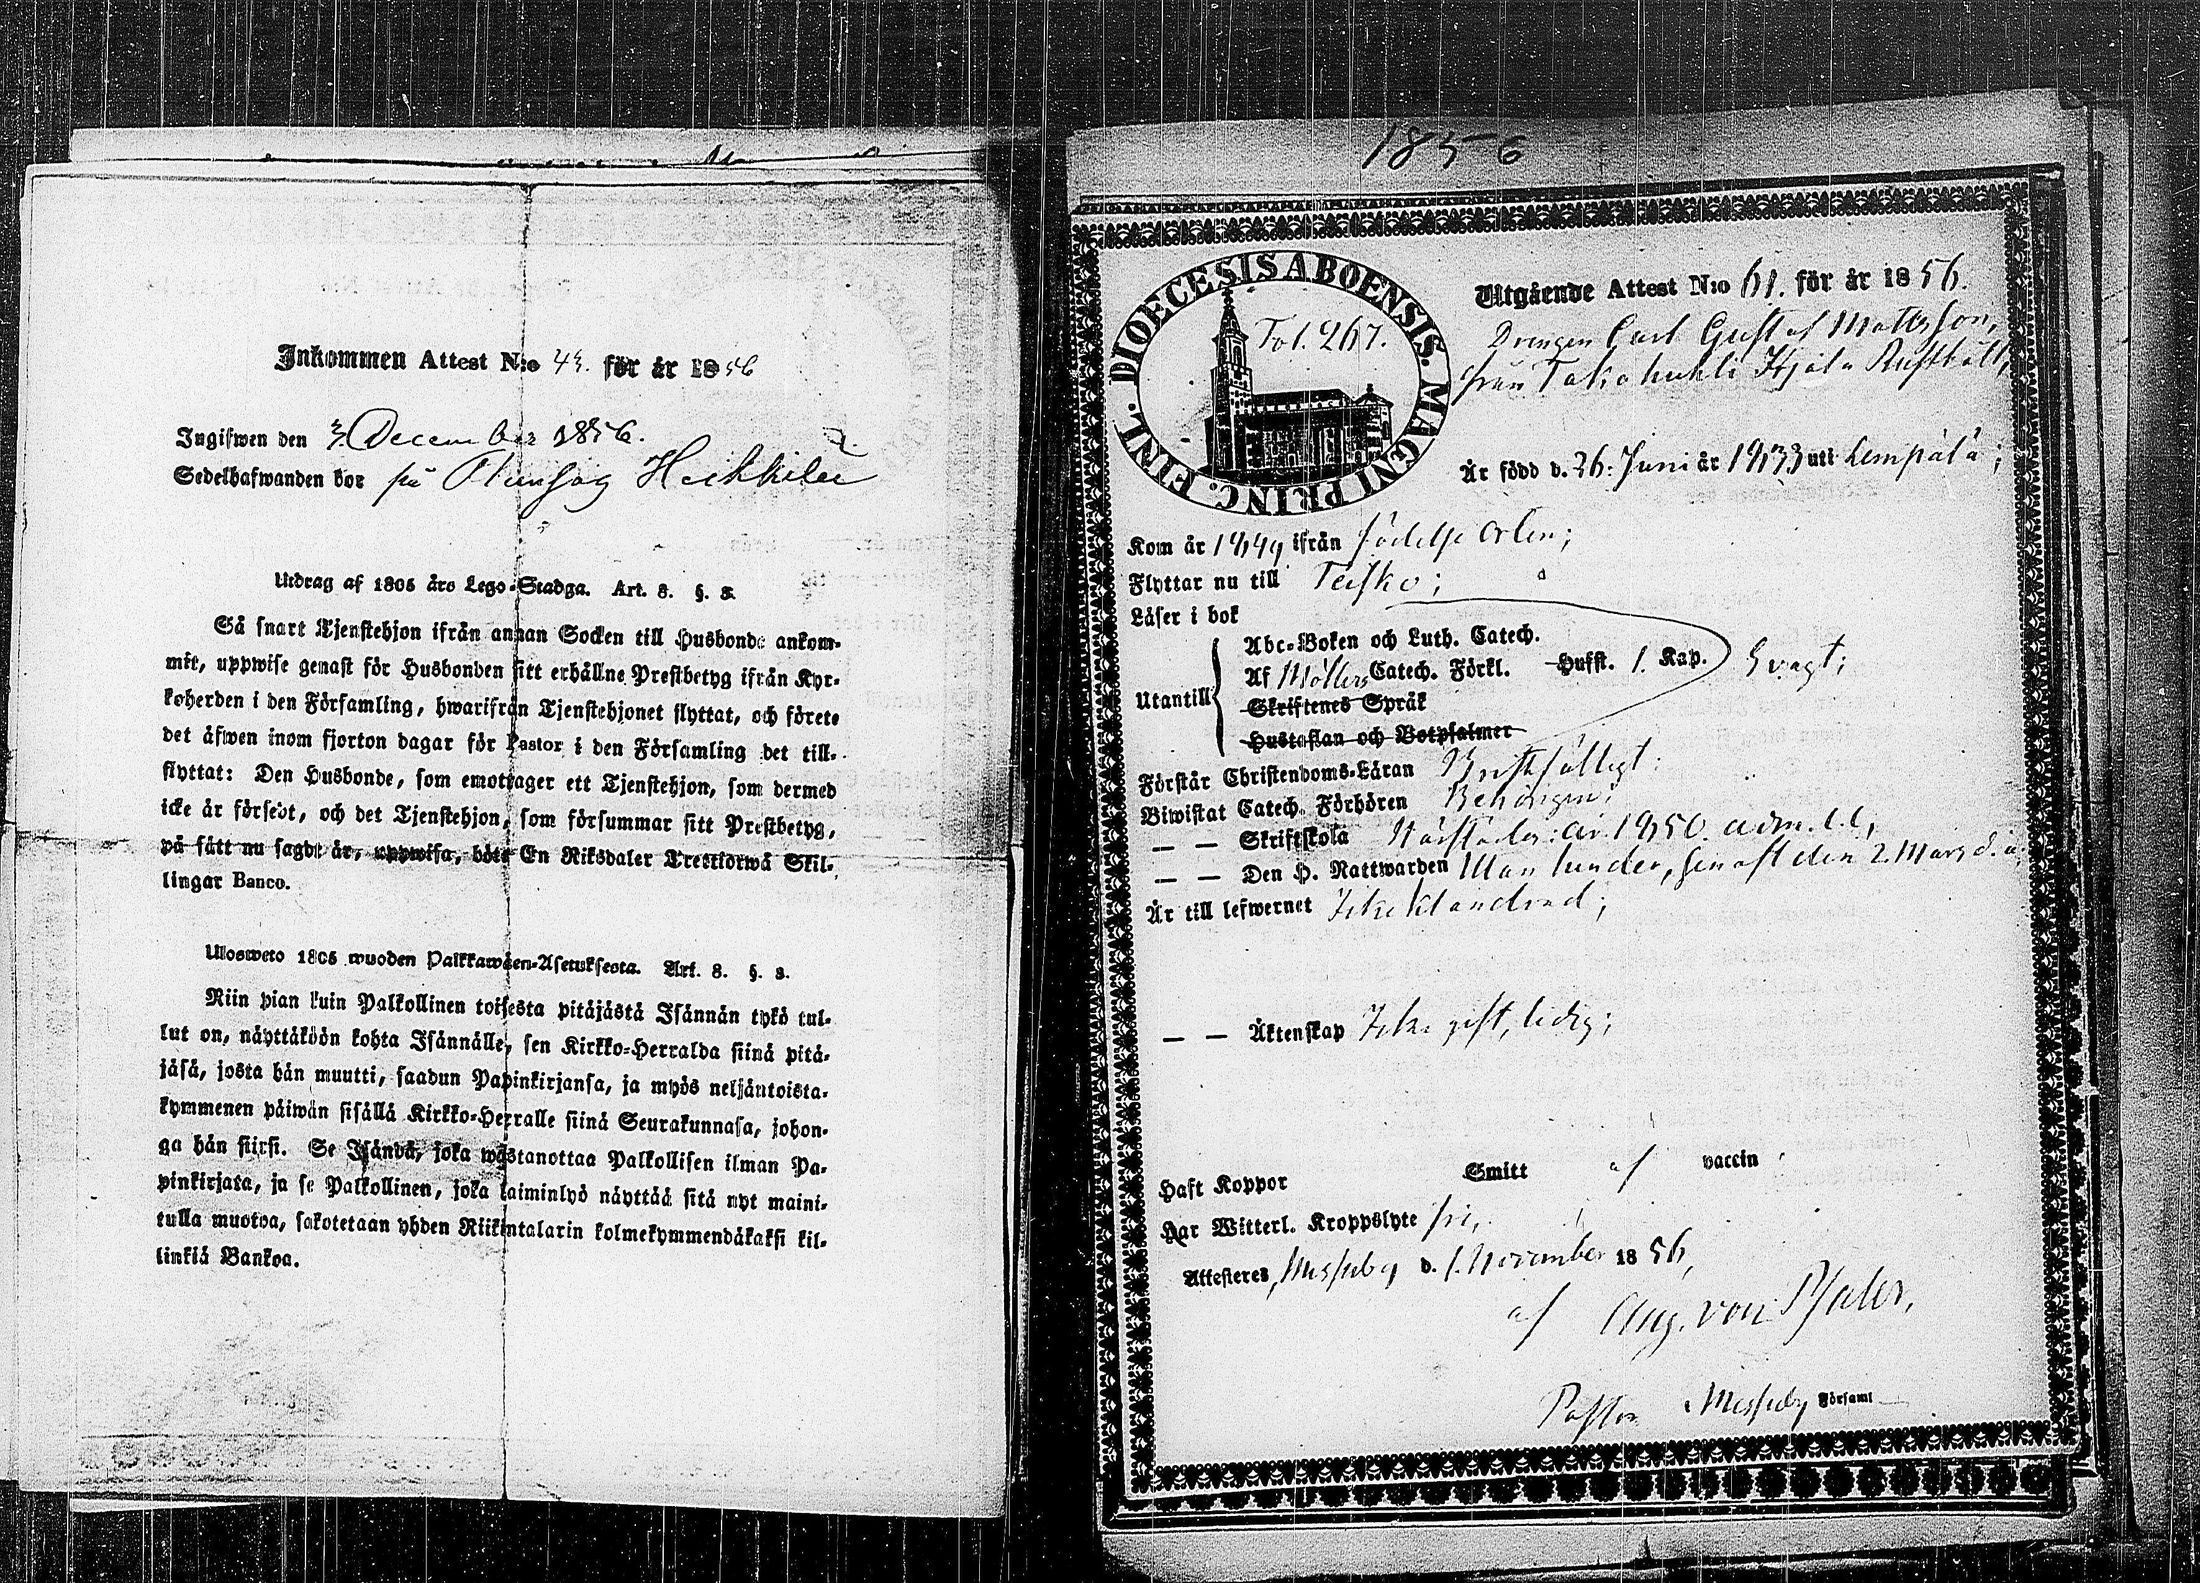 Inkommen Attest N:o 43. för år 1856
Ingifwen den 3 December 1856.
Sedelhafwanden bor på Heikkilä
Utdrag af 1805 års Lego-Stadga. Art. 8. §. 3.
Så snart Tjenstehjon ifrån annan Socken till Husbonde ankom-
mit, uppwise genast för Husbonden sitt erhållne Prestbetyg ifrån Kyr-
koherden i den Församling, hwarifrån Tjenstehjonet flyttat, och förete
det äfwen inom fjorton dagar för Pastor i den Församling det till-
flyttat: Den Husbonde, som emottager ett Tjenstehjon, som dermed
icke är försedt, och det Tjenstehjon, som försummar sitt Prestbetyg,
på sätt nu sagdt är, uppwisa, böte En Riksdaler Trettiotwå Skil-
lingar Banco.
Ulosweto 1805 wuoden Palkkawäen-Asetuksesta. Art. 8. §. 3.
Niin pian kuin Palkollinen toisesta pitäjästä Isännän tykö tul-
lut on, näyttäköön kohta Isännälle, sen Kirkko-Herralda siinä pitä-
jäsä, josta hän muutti, saadun Papinkirjansa, ja myös neljäntoista-
kymmenen päiwän sisällä Kirkko-Herralle siinä Seurakunnasa, johon-
ga hän siirsi. Se Isändä, joka wastanottaa Palkollisen ilman Pa-
pinkirjata, ja se Palkollinen, joka laiminlyö näyttää sitä nyt maini-
tulla muotoa, sakotetaan yhden Riikintalarin kolmekymmendäkaksi kil-
linkiä Bankoa.
1856
DIOECESIS ABOENSIS. MAGNI PRINC. FINL.
Fol. 267.
Utgående Attest N:o 61. för år 1856.
Drengen Carl Gustaf Mattsson,
från Takahuhti Rusthåll,
Är född d. 26. Juni år 1833 uti Lempälä;
Kom år 1849 ifrån födelse orten;
Flyttar nu till Teisko;
Läser i bok
Utantill
Abc-Boken och Luth. Catech.
Af Möllers Catech. Förkl. Hufst. 1. Kap. Svagt;
Skriftenes Språk
Hustaflan och Botpsalmer
Förstår Christendoms-Läran Bristfälligt:
Biwistat Catech. Förhören Behörigen;
— — Skriftskola år 1850. adm. d. d.;
— — Den H. Nattwarden senast den 2. Mars d. å.
Är till lefwernet Icke klandrad;
— — Äktenskap Icke gift, ledig;
Haft Koppor Smitt af vaccin
Har Witterl. Kroppslyte fri,
Attesteres, Messuby d. 1. November 1856,
af Aug. von Pfaler,
Pastor i Messuby Församl